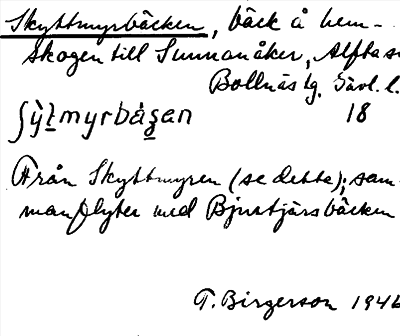 Skyttmyrbäcken, bäck å hem-
skogen till Sunnanåker, Alfta sn
Bollnäs tg. Gävl. l.
ʃỳʈmyrbäʂan 18
Från Skyttmyren (se detta); sam-
manflyter med Bjurtjärsbäcken
T. Birgerson 1946